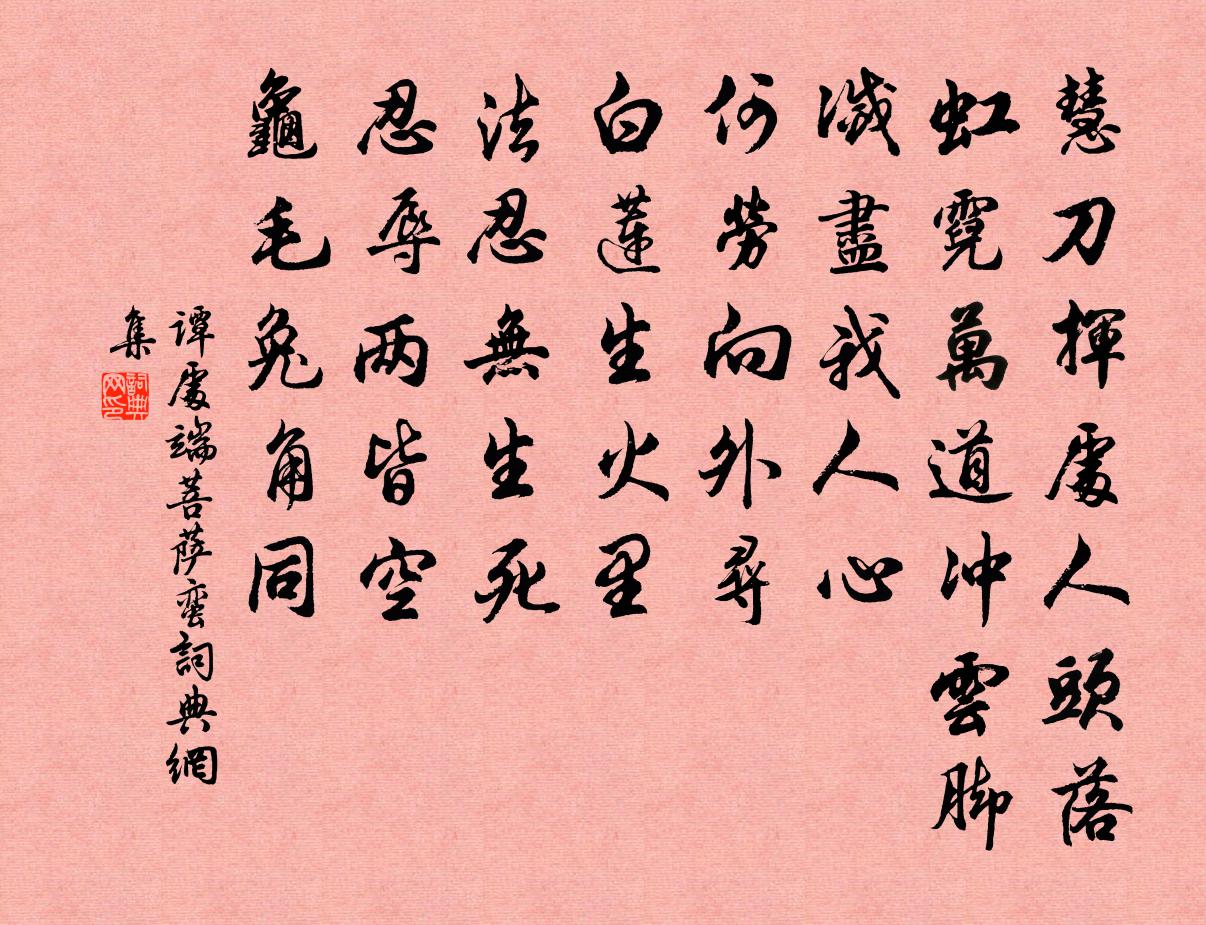 慧刀揮處人頭落
虹霓萬道沖雲脚
滅盡我人心
何勞向外尋
白蓮生火里
法忍無生死
忍辱两皆空
龜毛兔角同
譚處端菩萨蛮詞典網
集
詞典網印